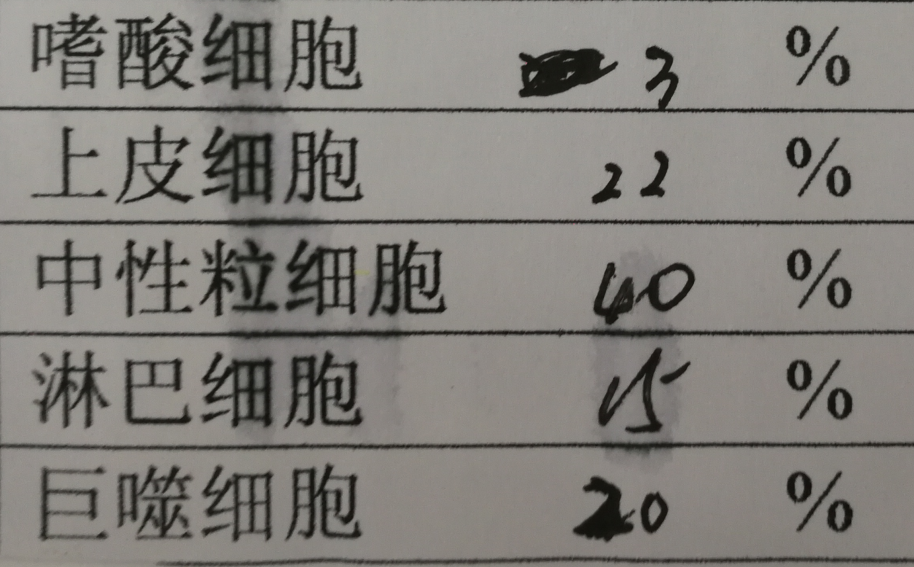 嗜酸细胞 3 %
上皮细胞 22 %
中性粒细胞 40 %
淋巴细胞 15 %
巨噬细胞 20 %